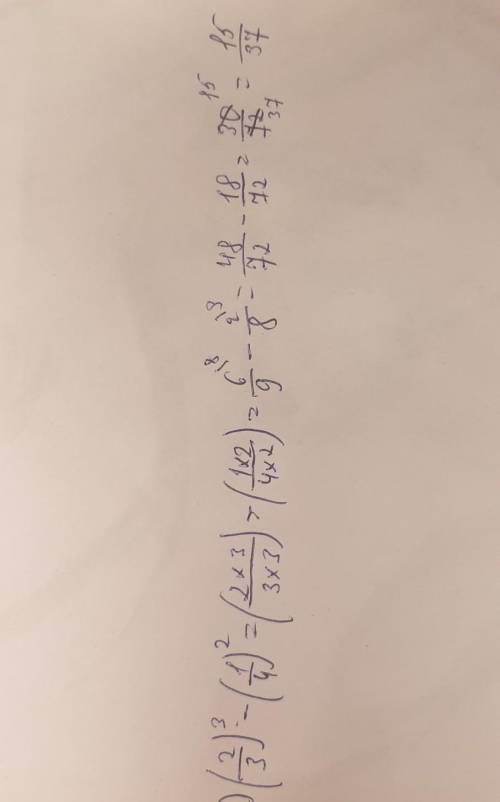 ) (2/3)³ - (1/4)² = (2×3/3×3) - (1×2/4×2) = 6\8/9 - 2\9/8 = 48/72 - 18/72 = 30 15/72 37 = 15/37